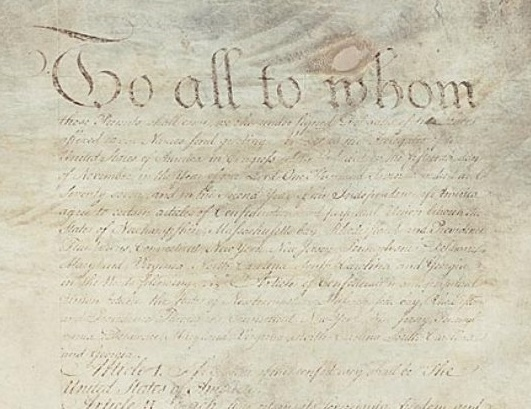 To all to whom
these Presents shall come, we the under signed Delegates of the States
affixed to our Names send greeting. Whereas the Delegates of the
United States of America in Congress assembled did on the fifteenth day
of November in the Year of our Lord One Thousand Seven Hundred and
Seventy seven, and in the Second Year of the Independence of America
agree to certain articles of Confederation and perpetual Union between the
States of Newhampshire, Massachusetts-bay, Rhodeisland and Providence
Plantations, Connecticut, New York, New Jersey, Pennsylvania, Delaware,
Maryland, Virginia, North Carolina, South Carolina and Georgia
in the Words following, viz. Articles of Confederation and perpetual
Union between the States of Newhampshire, Massachusetts-bay, Rhodeisland
and Providence Plantations, Connecticut, New York, New Jersey, Pennsyl
vania, Delaware, Maryland, Virginia, North Carolina, South Carolina
and Georgia.
Article I. The Stile of this confederacy shall be "The
United States of America."
Article II. Each state retains its sovereignty, freedom and